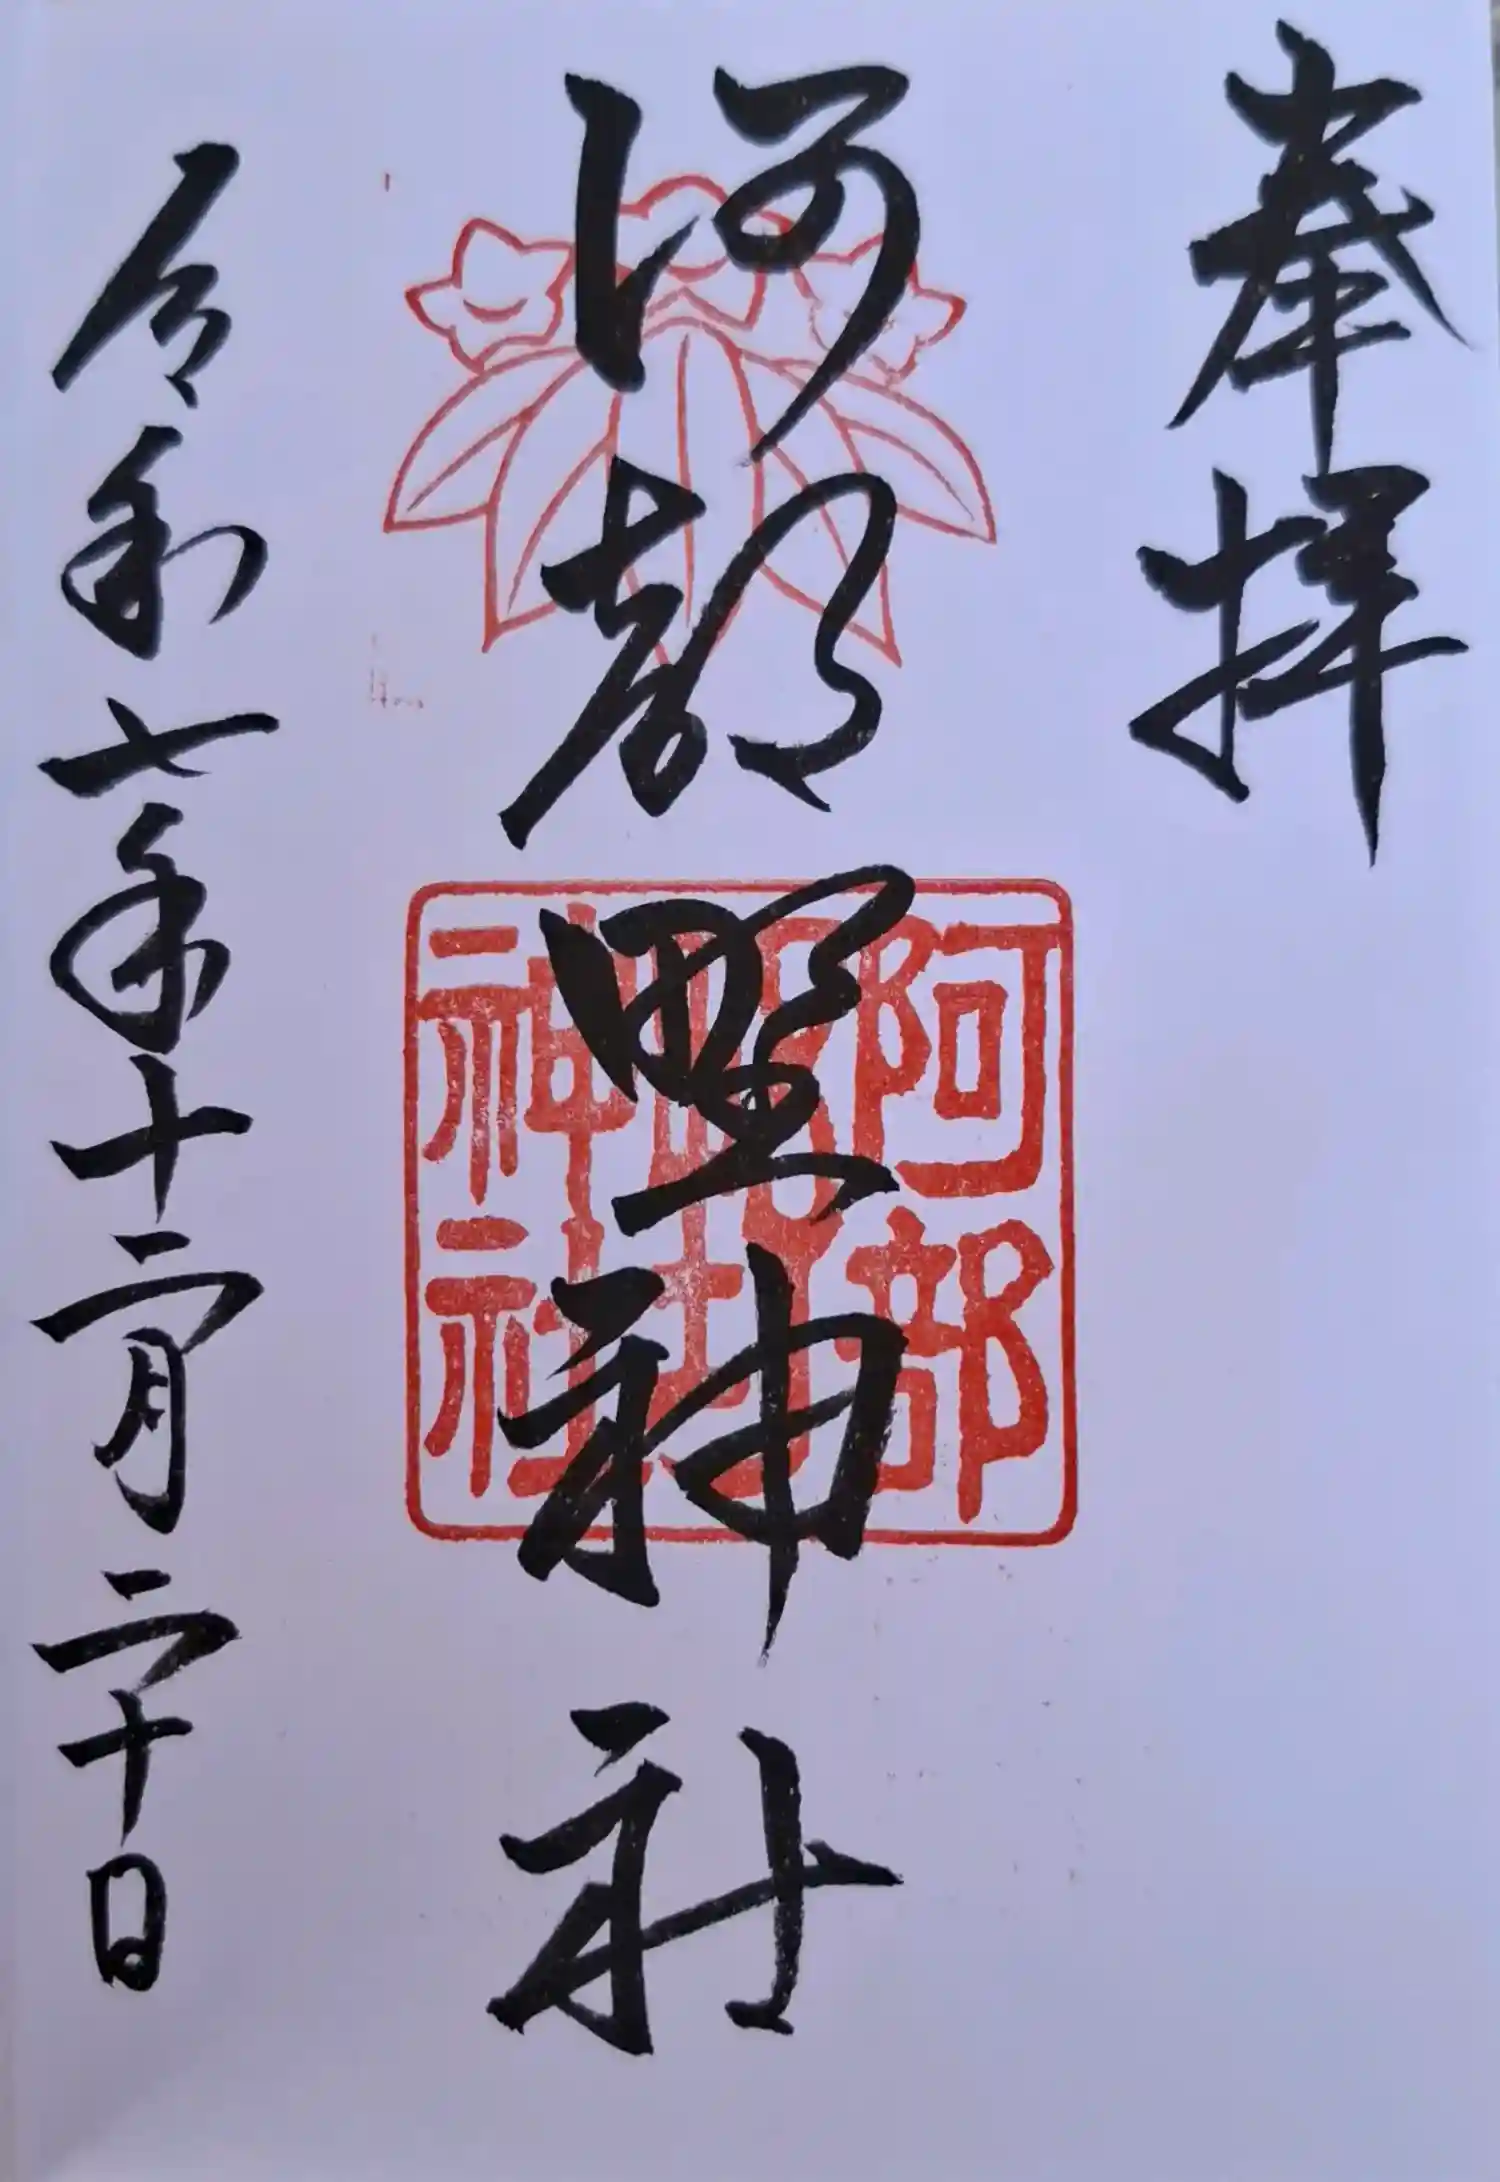 奉拝
阿部野神社
令和七年十二月二十日
阿部
野
神社